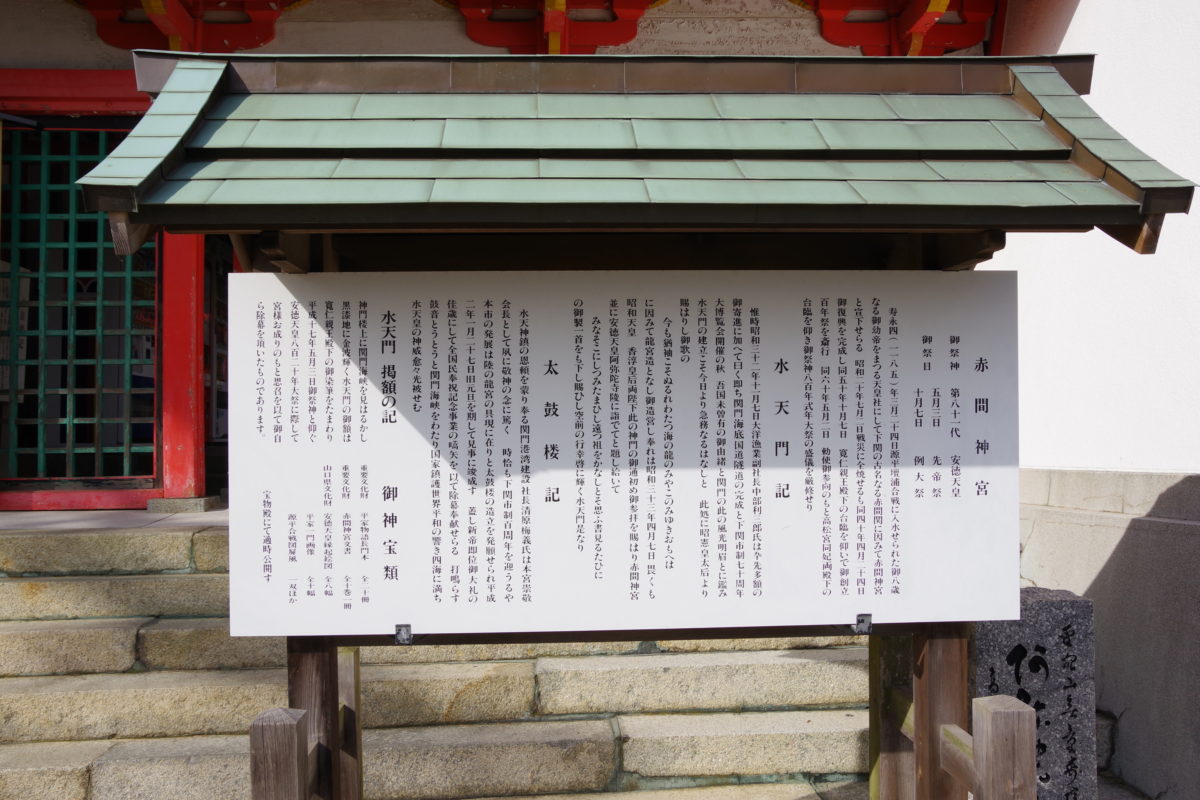 赤間神宮
御祭神　第八十一代　安徳天皇
御祭日　五月三日　先帝祭
十月七日　例大祭
寿永四(一一八五)年三月二十四日源平壇浦合戦に入水せられた御八歳
なる御幼帝をまつる天皇社にして下関の古名なる赤間関に因みて赤間神宮
と宣下せらる　昭和二十年七月二日戦災に全焼せるも同四十年四月二十四日
御復興を完成し同五十年十月七日　寛仁親王殿下の台臨を仰いで御創立
百年祭を斎行　同六十年五月二日　勅使御参向のもと高松宮同妃両殿下の
台臨を仰き御祭神八百年式年大祭の盛儀を厳修せり
水天門記
惟時昭和三十二年十一月七日大洋漁業副社長中部利三郎氏は今先多額の
御寄進に加へて曰く即ち関門海底国道隧道の完成と下関市制七十周年
大博覧会開催の秋　吾国未曽有の御由緒と関門の此の風光明眉とに鑑み
水天門の建立こそ今日より急務なるはなしと　此処に昭憲皇太后より
賜はりし御歌の
今も猶袖こそぬるれわたつ海の龍のみやこのみゆきおもへは
に因みて龍宮造となし御造営し奉れは昭和三十三年四月七日　畏くも
昭和天皇　香淳皇后両陛下此の神門の御通初め御参拝を賜はり赤間神宮
並に安徳天皇阿弥陀寺陵に詣でてと題し給いて
みなそこにしつみたまひし遠つ祖をかなしとそ思ふ書見るたひに
の御製一首をも下し賜ひし空前の行幸啓に輝く水天門是なり
太鼓楼記
水天神鎮の恩頼を蒙り奉る関門港湾建設社長清原梅義氏は本宮崇敬
会長として夙に敬神の念に篤く　時恰も下関市制百周年を迎うるや
本市の発展は陸の龍宮の具現に在りと太鼓楼の造立を発願せられ平成
二年一月二十七日旧元旦を期して見事に竣成す　蓋し新帝即位御大礼の
佳歳にして全国民奉祝記念事業の嚆矢を以て除幕奉献せらる　打鳴らす
鼓音とうとうと関門海峡をわたり国家鎮護世界平和の響き四海に満ち
水天皇の神威愈々光被せむ
水天門　掲額の記
神門楼上に関門海峡を見はるかし
黒漆地に金波輝く水天門の御額は
寛仁親王殿下の御染筆をたまわり
平成十七年五月三日御祭神と仰ぐ
安徳天皇八百二十年大祭に際して
宮様お成りのもと思召を以て御自
ら除幕を頂いたものであります。
御神宝類
重要文化財　平家物語長門本　全二十冊
重要文化財　赤間神宮文書　全十巻一冊
山口県文化財　安徳天皇縁起絵図　全八幅
平家一門画像　全十幅
源平合戦図屏風　一双ほか
宝物殿にて適時公開す